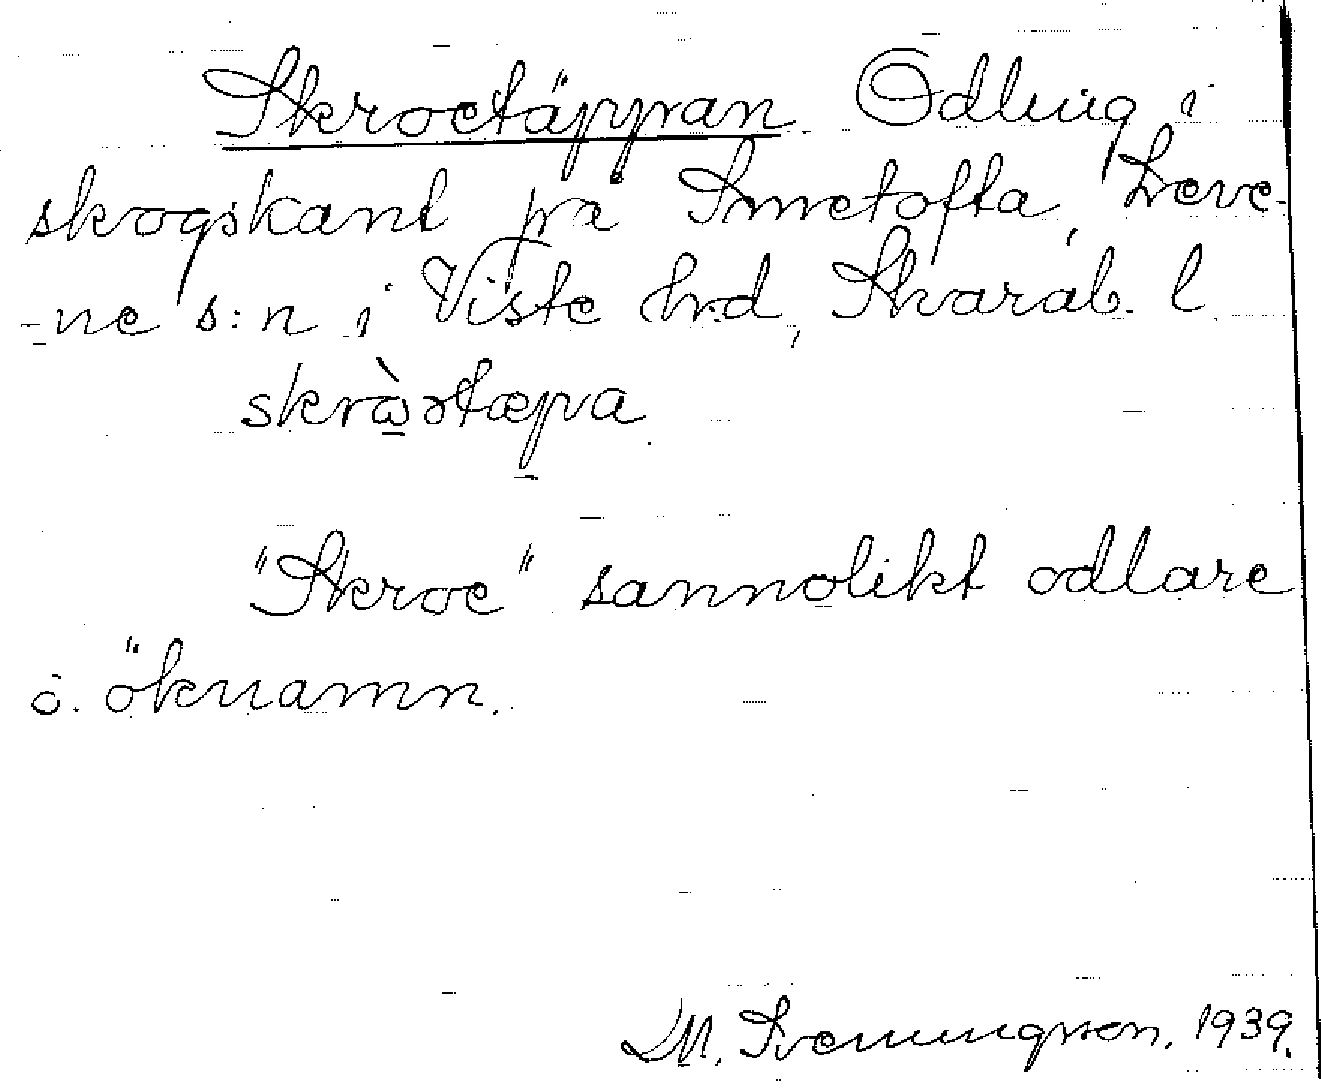 Skroetäppan Odling i
skogskant på Smetofta, Leve-
-ne s:n i Viste hrd, Skarab. l.
skrὼətæpa
"Skroe" sannolikt odlare
o. öknamn.
M. Svenungsson. 1939.